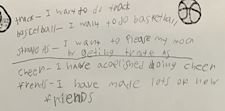 track - I wanty to do track
basketball - I wanty to do basketball,
straight As - I want to please my mom
by getting straight As
cheer - I have acoplished doing cheer
frends - I have made lots of new
friends